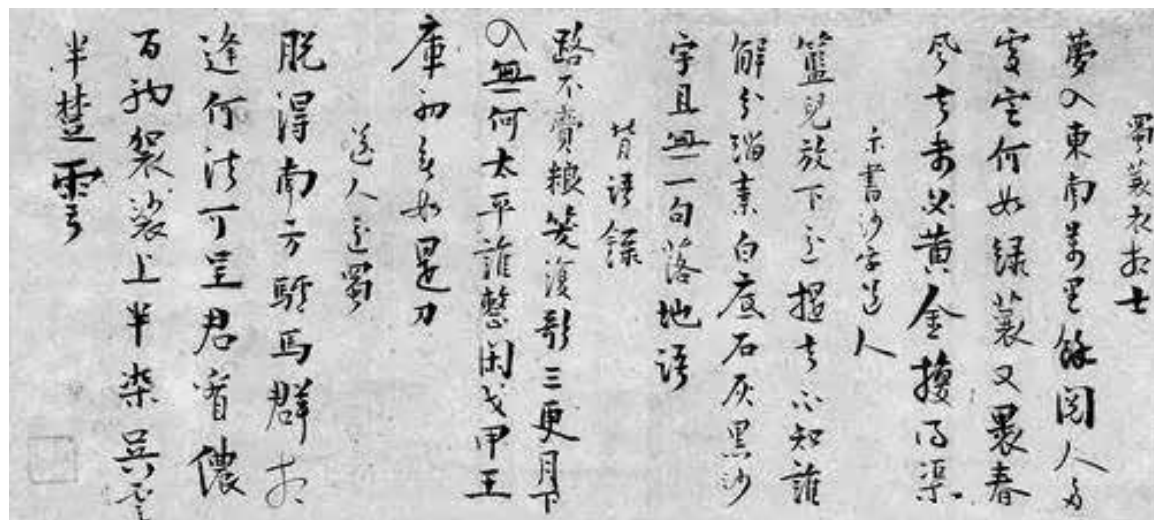 蜀蓑衣杜士
夢入東南萬里餘閱人多
處定何如綠蓑又裹春
風去未必黃金換得渠
示書沙字道人
籃兒放下立擡去不知誰
解分緇素白底石灰黑沙
字且無一句落地語
背語錄
路不賫粮笑復歌三更月下
入無何太平誰整閑戈甲王
庫初無如是刀
送人之蜀
脫得南方驢馬群
逢作法丁呈君看儂
百衲袈裟上半柒吳雲
半楚雲